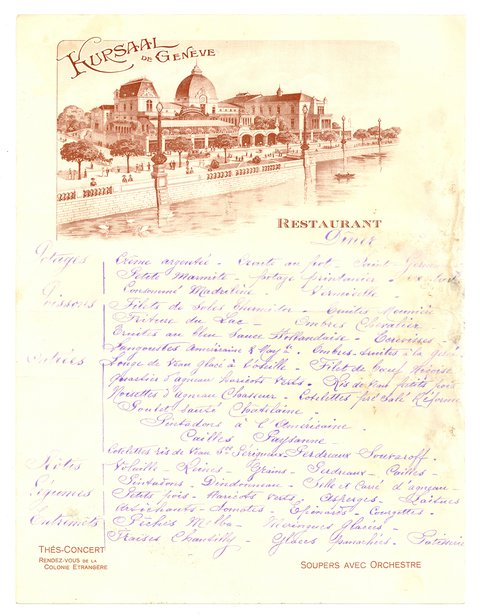 KURSAAL
DE GENÈVE
RESTAURANT
Diner
Potages Crème argentée - Croute au pot - Saint Germain
Petite Marmite - Potage printanière -
Consommé Madrilène - Vermicelle -
Poissons Filets de Soles Thermidor - Truites Meunière
Friture du Lac - Ombres Chevalier
Truites au Bleu Sauce Hollandaise - Ecrevisses -
Langoustes Américaine & May. - Ombres truites à la
Entrées Longe de Veau glacé à l'oseille - Filet de boeuf Niçoise
Quartier d'agneau Haricots verts - Ris de veau petits pois
Noisettes d'agneau Chasseur - Cotelettes pré Salé Réforme
Poulet Sauté Chatelaine -
Pintadons à l'Américaine -
Cailles Paysanne -
Cotelettes ris de veau Périgueux Perdreaux Souvaroff -
Rôtis Volaille - Reines - Grains - Perdreaux - Cailles -
Pintadons - Dindonneau - Selle et Carré d'agneau -
Légumes Petits pois - Haricots verts - Asperges - Laitues
Artichauts - Tomates - Epinards - Courgettes -
Entremets Pêches Melba - Meringues Glacées -
Fraises Chantilly - Glaces Panachées - Patisserie
THÉS-CONCERT
RENDEZ-VOUS DE LA
COLONIE ETRANGÈRE
SOUPERS AVEC ORCHESTRE